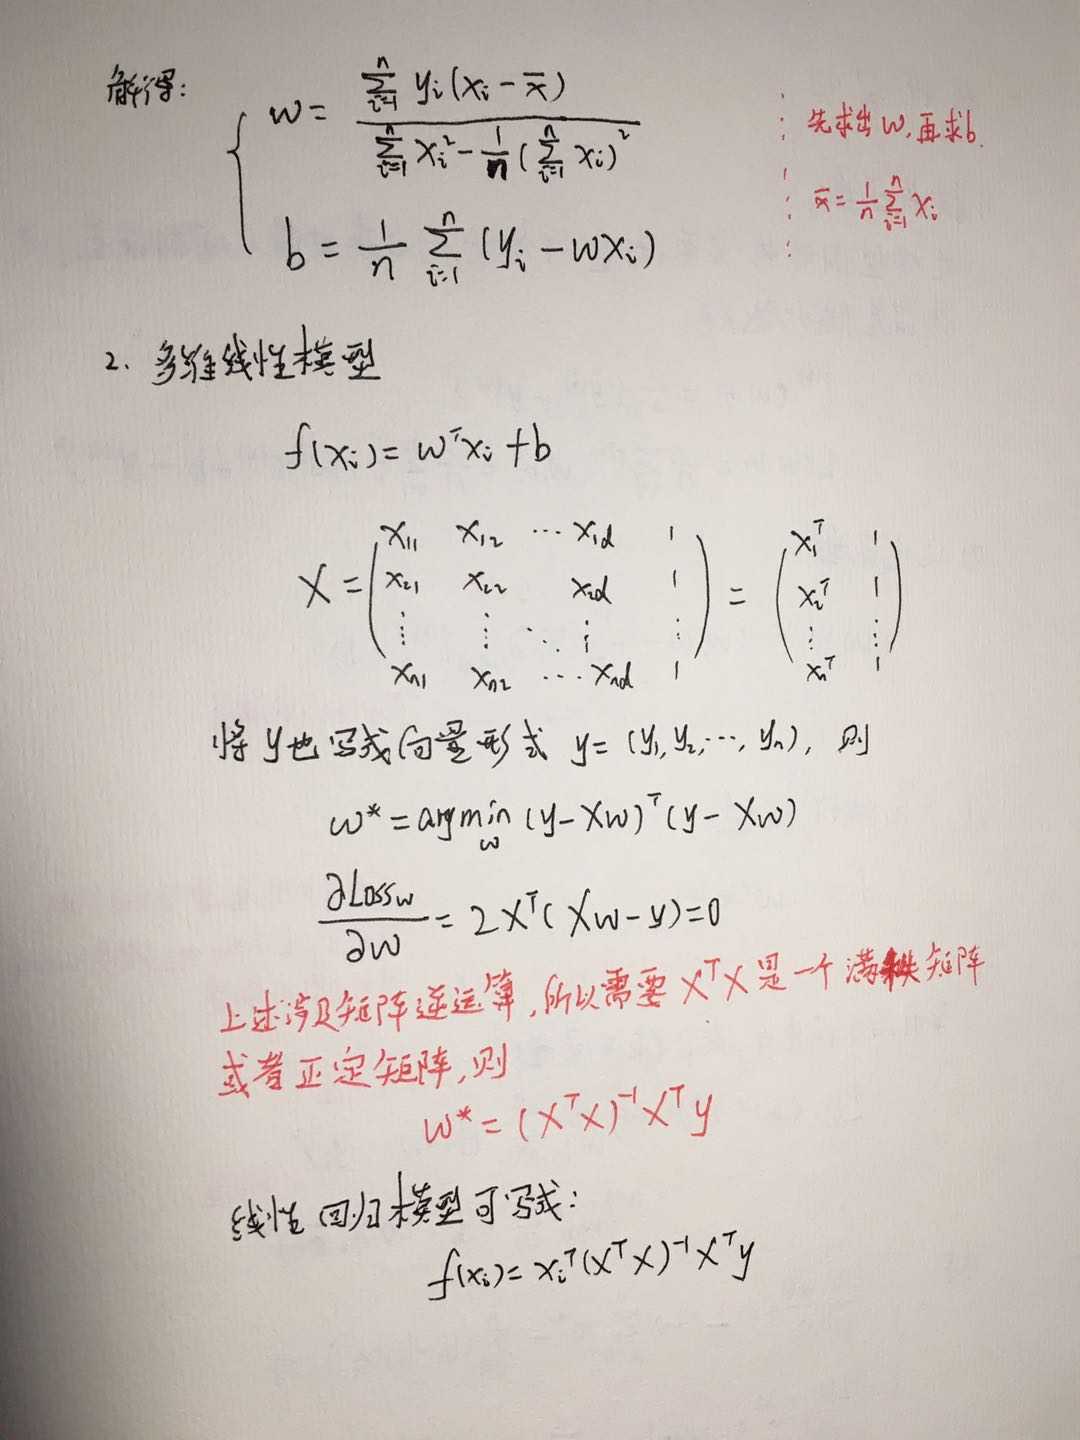 解得:
w = \frac{\sum_{i=1}^{n} y_i (x_i - \bar{x})}{\sum_{i=1}^{n} x_i^2 - \frac{1}{n} (\sum_{i=1}^{n} x_i)^2}
先求出 w, 再求 b.
\bar{x} = \frac{1}{n} \sum_{i=1}^{n} x_i
b = \frac{1}{n} \sum_{i=1}^{n} (y_i - w x_i)
2. 多维线性模型
f(x_i) = w^T x_i + b
X = \begin{pmatrix} x_{11} & x_{12} & \cdots & x_{1d} & 1 \\ x_{21} & x_{22} & & x_{2d} & 1 \\ \vdots & \vdots & \ddots & \vdots & \vdots \\ x_{n1} & x_{n2} & \cdots & x_{nd} & 1 \end{pmatrix} = \begin{pmatrix} x_1^T & 1 \\ x_2^T & 1 \\ \vdots & \vdots \\ x_n^T & 1 \end{pmatrix}
将 y 也写成向量形式 y = (y_1, y_2, \cdots, y_n), 则
w^* = \arg\min_w (y - Xw)^T (y - Xw)
\frac{\partial Loss_w}{\partial w} = 2X^T (Xw - y) = 0
上述涉及矩阵逆运算, 所以需要 X^T X 是一个满秩矩阵
或者正定矩阵, 则
w^* = (X^T X)^{-1} X^T y
线性回归模型可写成:
f(x_i) = x_i^T (X^T X)^{-1} X^T y